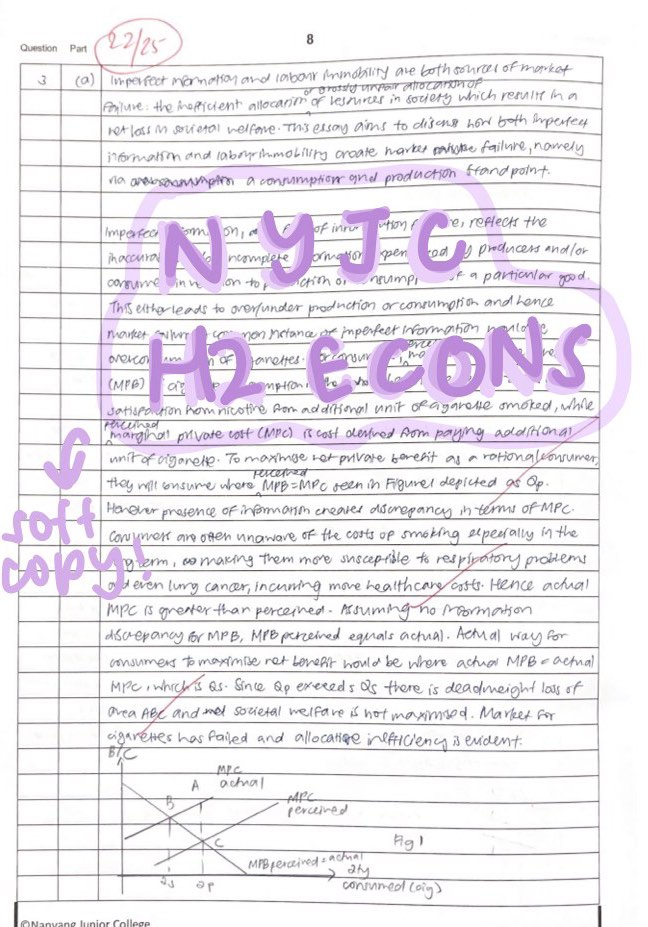 22/25
8
Question Part
3 (a) Imperfect information and labour immobility are both sources of market
or grossly unfair allocation of
failure: the inefficient allocation of resources in society which results in a
net loss in societal welfare. This essay aims to discuss how both imperfect
information and labour immobility create market failure, namely
via a consumption and production standpoint.
NYJC
Imperfect information, a of information failure, reflects the
inaccurate incomplete information experienced by producers and/or
consumers in relation to production or consumption of a particular good.
This either leads to over/under production or consumption and hence
market failure. common instance of imperfect information would be
H2 ECONS
overconsumption of cigarettes. For consumers,
(MPB) cig consumption is the
satisfaction from nicotine from additional unit of cigarette smoked, while
perceived
marginal private cost (MPC) is cost derived from paying additional
unit of cigarette. To maximise net private benefit as a rational consumer,
perceived
they will consume where MPB = MPC seen in Figure 1 depicted as Qp.
However presence of information creates discrepancy in terms of MPC.
soft copy!
Consumers are often unaware of the costs of smoking especially in the
long term, making them more susceptible to respiratory problems
and even lung cancer, incurring more healthcare costs. Hence actual
MPC is greater than perceived. Assuming no information
discrepancy for MPB, MPB perceived equals actual. Actual way for
consumers to maximise net benefit would be where actual MPB = actual
MPC, which is Qs. Since Qp exceeds Qs there is deadweight loss of
area ABC and societal welfare is not maximised. Market for
cigarettes has failed and allocative inefficiency is evident.
B/C
MPC
actual
A
B
MPC
perceived
C
Fig 1
MPB perceived = actual
Qs Qp
Qty
consumed (cig)
©Nanyang Junior College